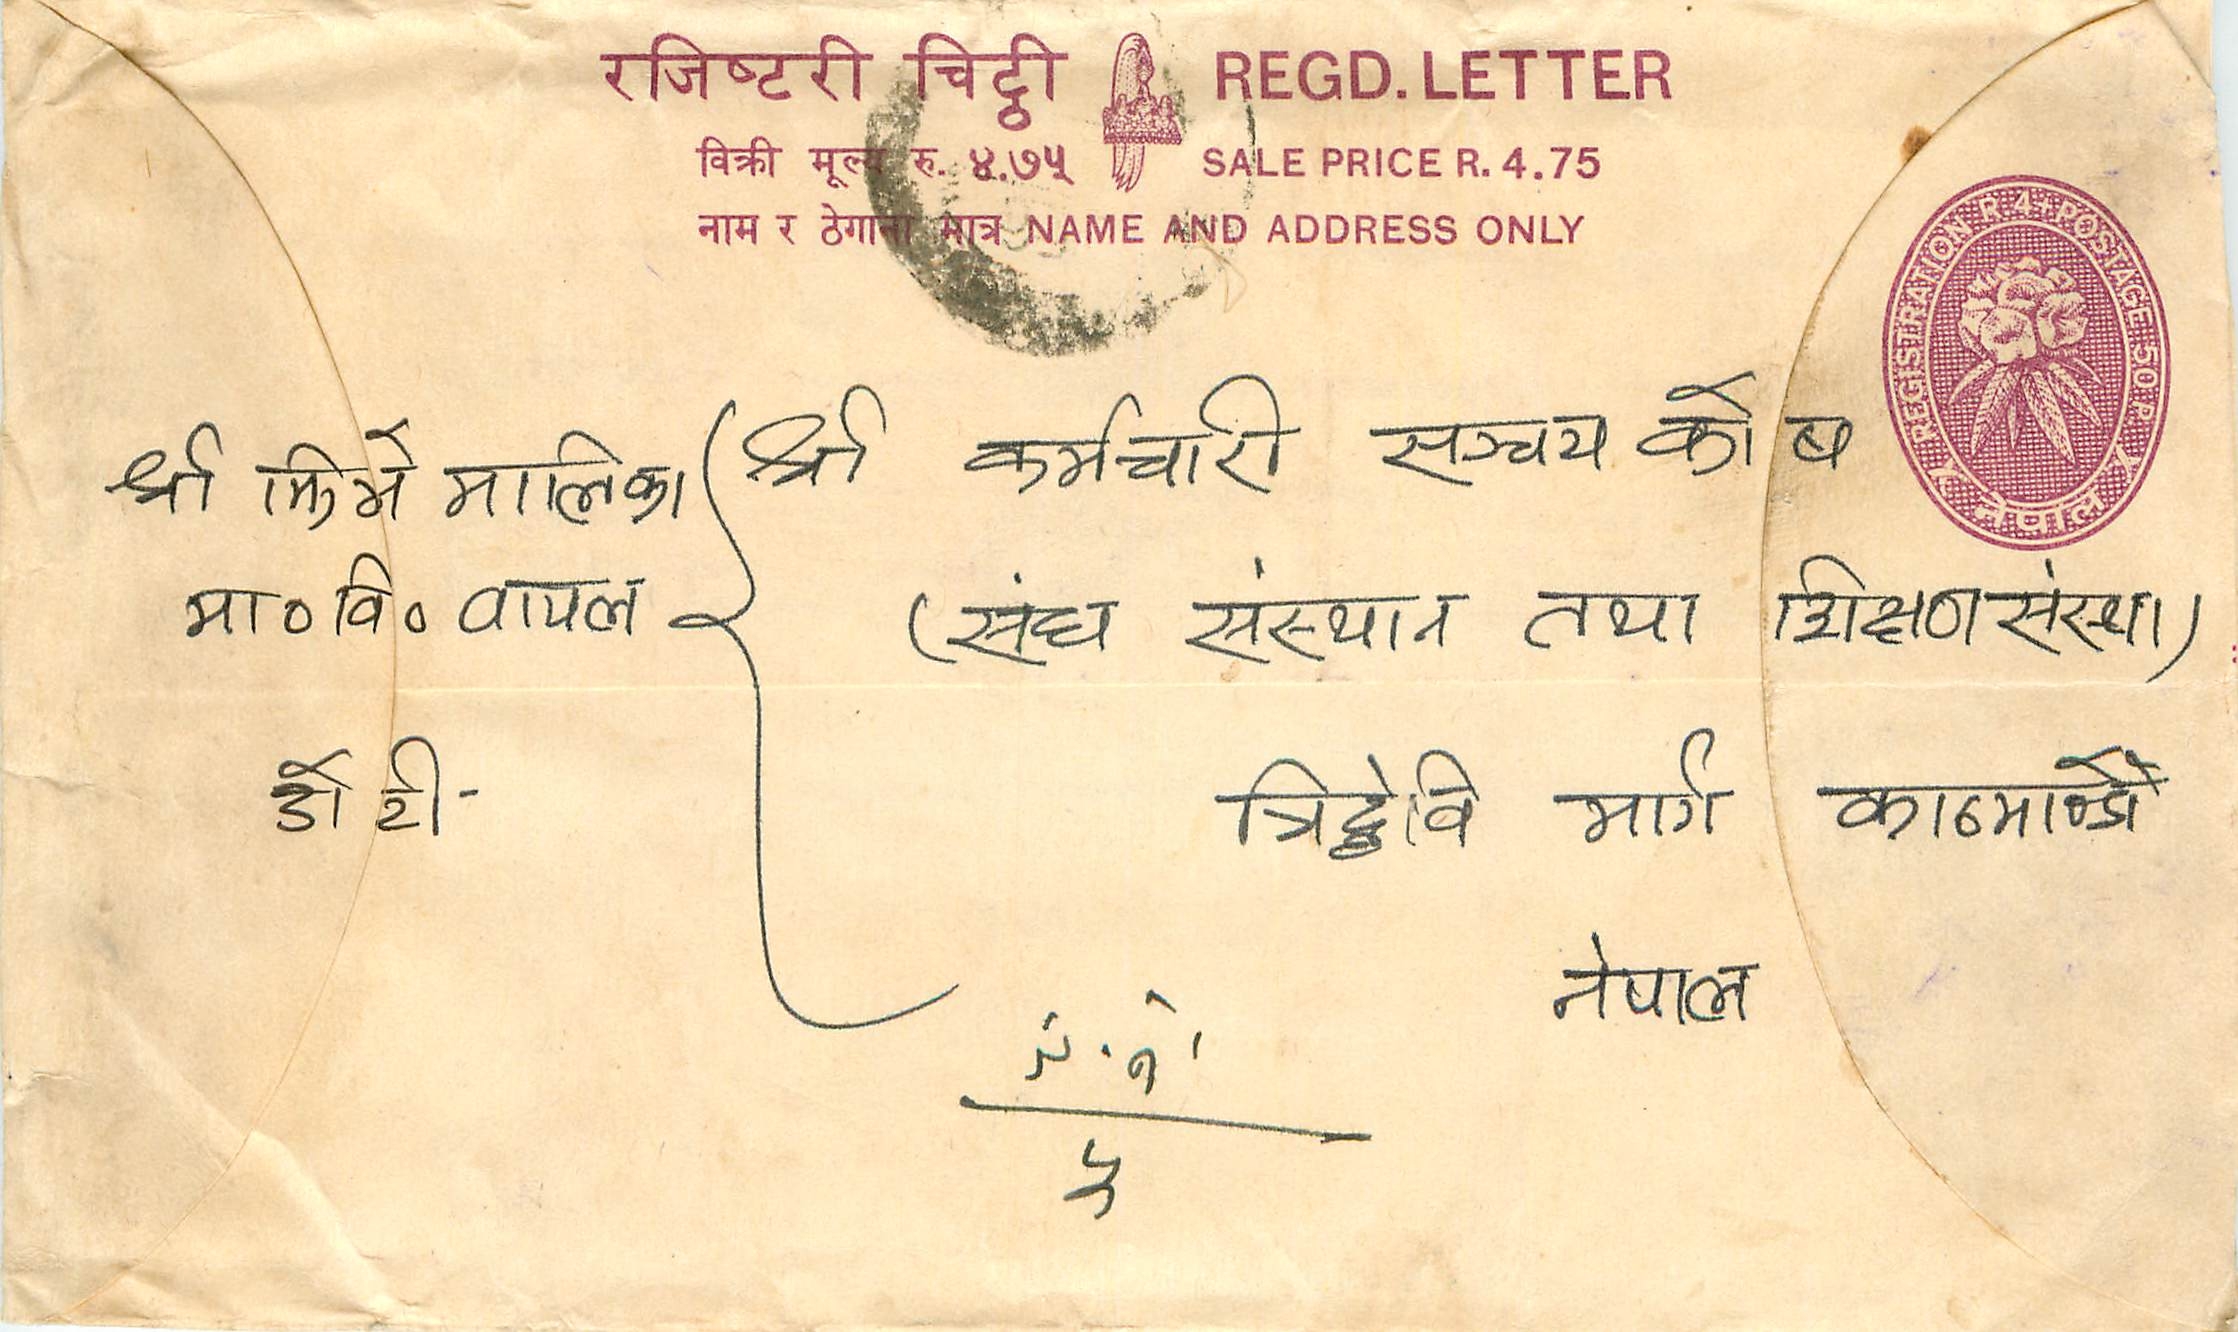 रजिष्टरी चिट्ठी REGD. LETTER
विक्री मूल्य रु. ४.७५ SALE PRICE R. 4.75
नाम र ठेगाना मात्र NAME AND ADDRESS ONLY
REGISTRATION R 4 + POSTAGE 50 P.
नेपाल
श्री मालिका
मा०वि० वायल
डोटी-
श्री कर्मचारी सञ्चय कोष
(संघ संस्थान तथा शिक्षण संस्था)
त्रिदेवि मार्ग काठमाण्डौ
नेपाल
५